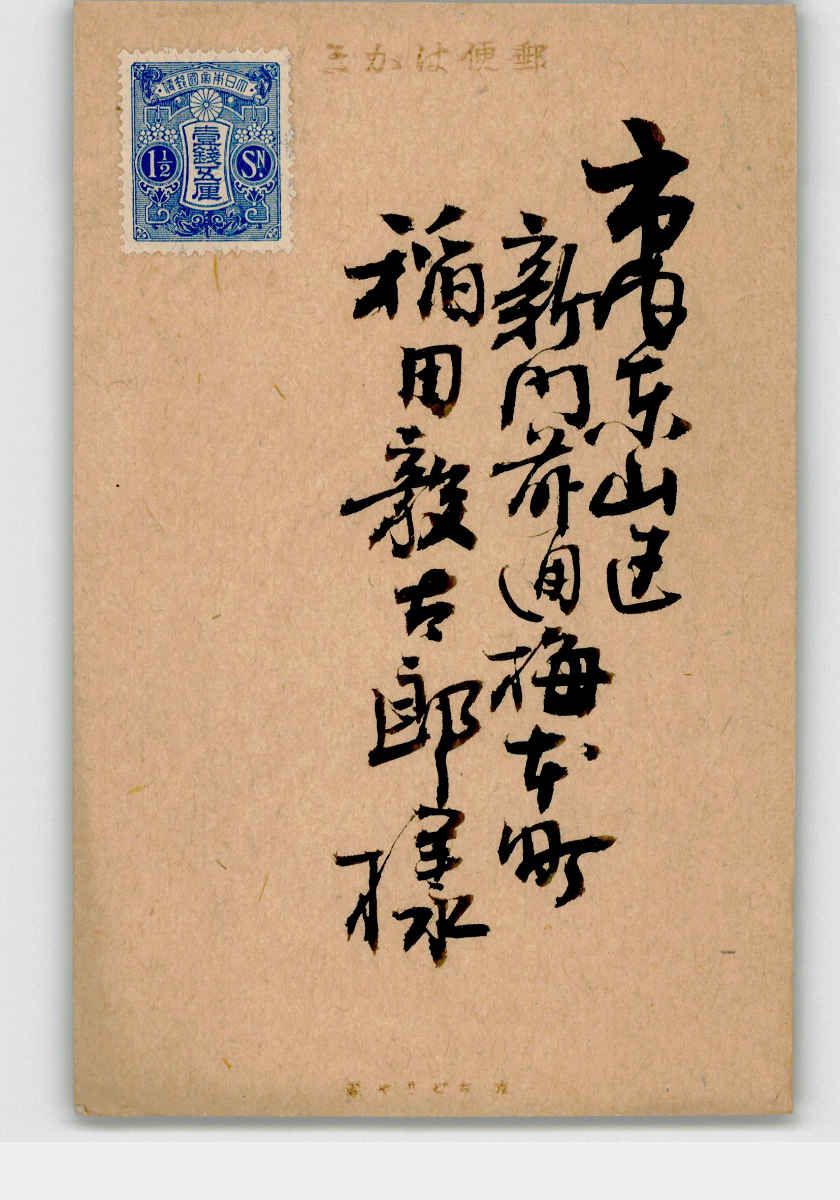 郵便はかき
大日本帝國郵便
壹錢五厘
1½
SN.
市内東山区
新門前通梅本町
稲田毅太郎様